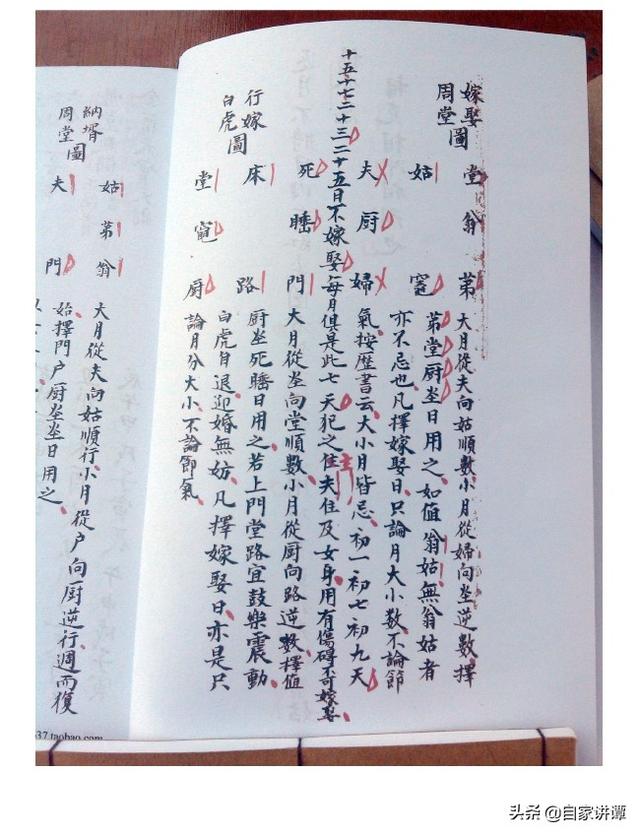 嫁娶周堂圖
堂 姑 夫
翁 厨
第 竈 婦
大月從夫向姑順數小月從婦向坐逆數擇
第堂厨坐日用之如值翁姑無翁姑者
亦不忌也凡擇嫁娶日只論月大小數不論節
氣按歷書云大小月皆忌初一初七初九天
十五十七二十三二十五日不嫁娶每月俱是此七天犯之佳夫住及女身用有傷碍不可嫁娶
行嫁白虎圖
死 床 堂
睡 竈
門 路 厨
大月從坐向堂順數小月從厨向路逆數擇值
厨坐死睡日用之若上門堂路宜鼓樂震動
白虎自退迎婚無妨凡擇嫁娶日亦是只
論月分大小不論節氣
納壻周堂圖
姑 夫
第
翁 門
大月從夫向姑順行小月從户向厨逆行週而復
始擇門户厨坐日用之
37.taobao.com
头条 @自家讲谭